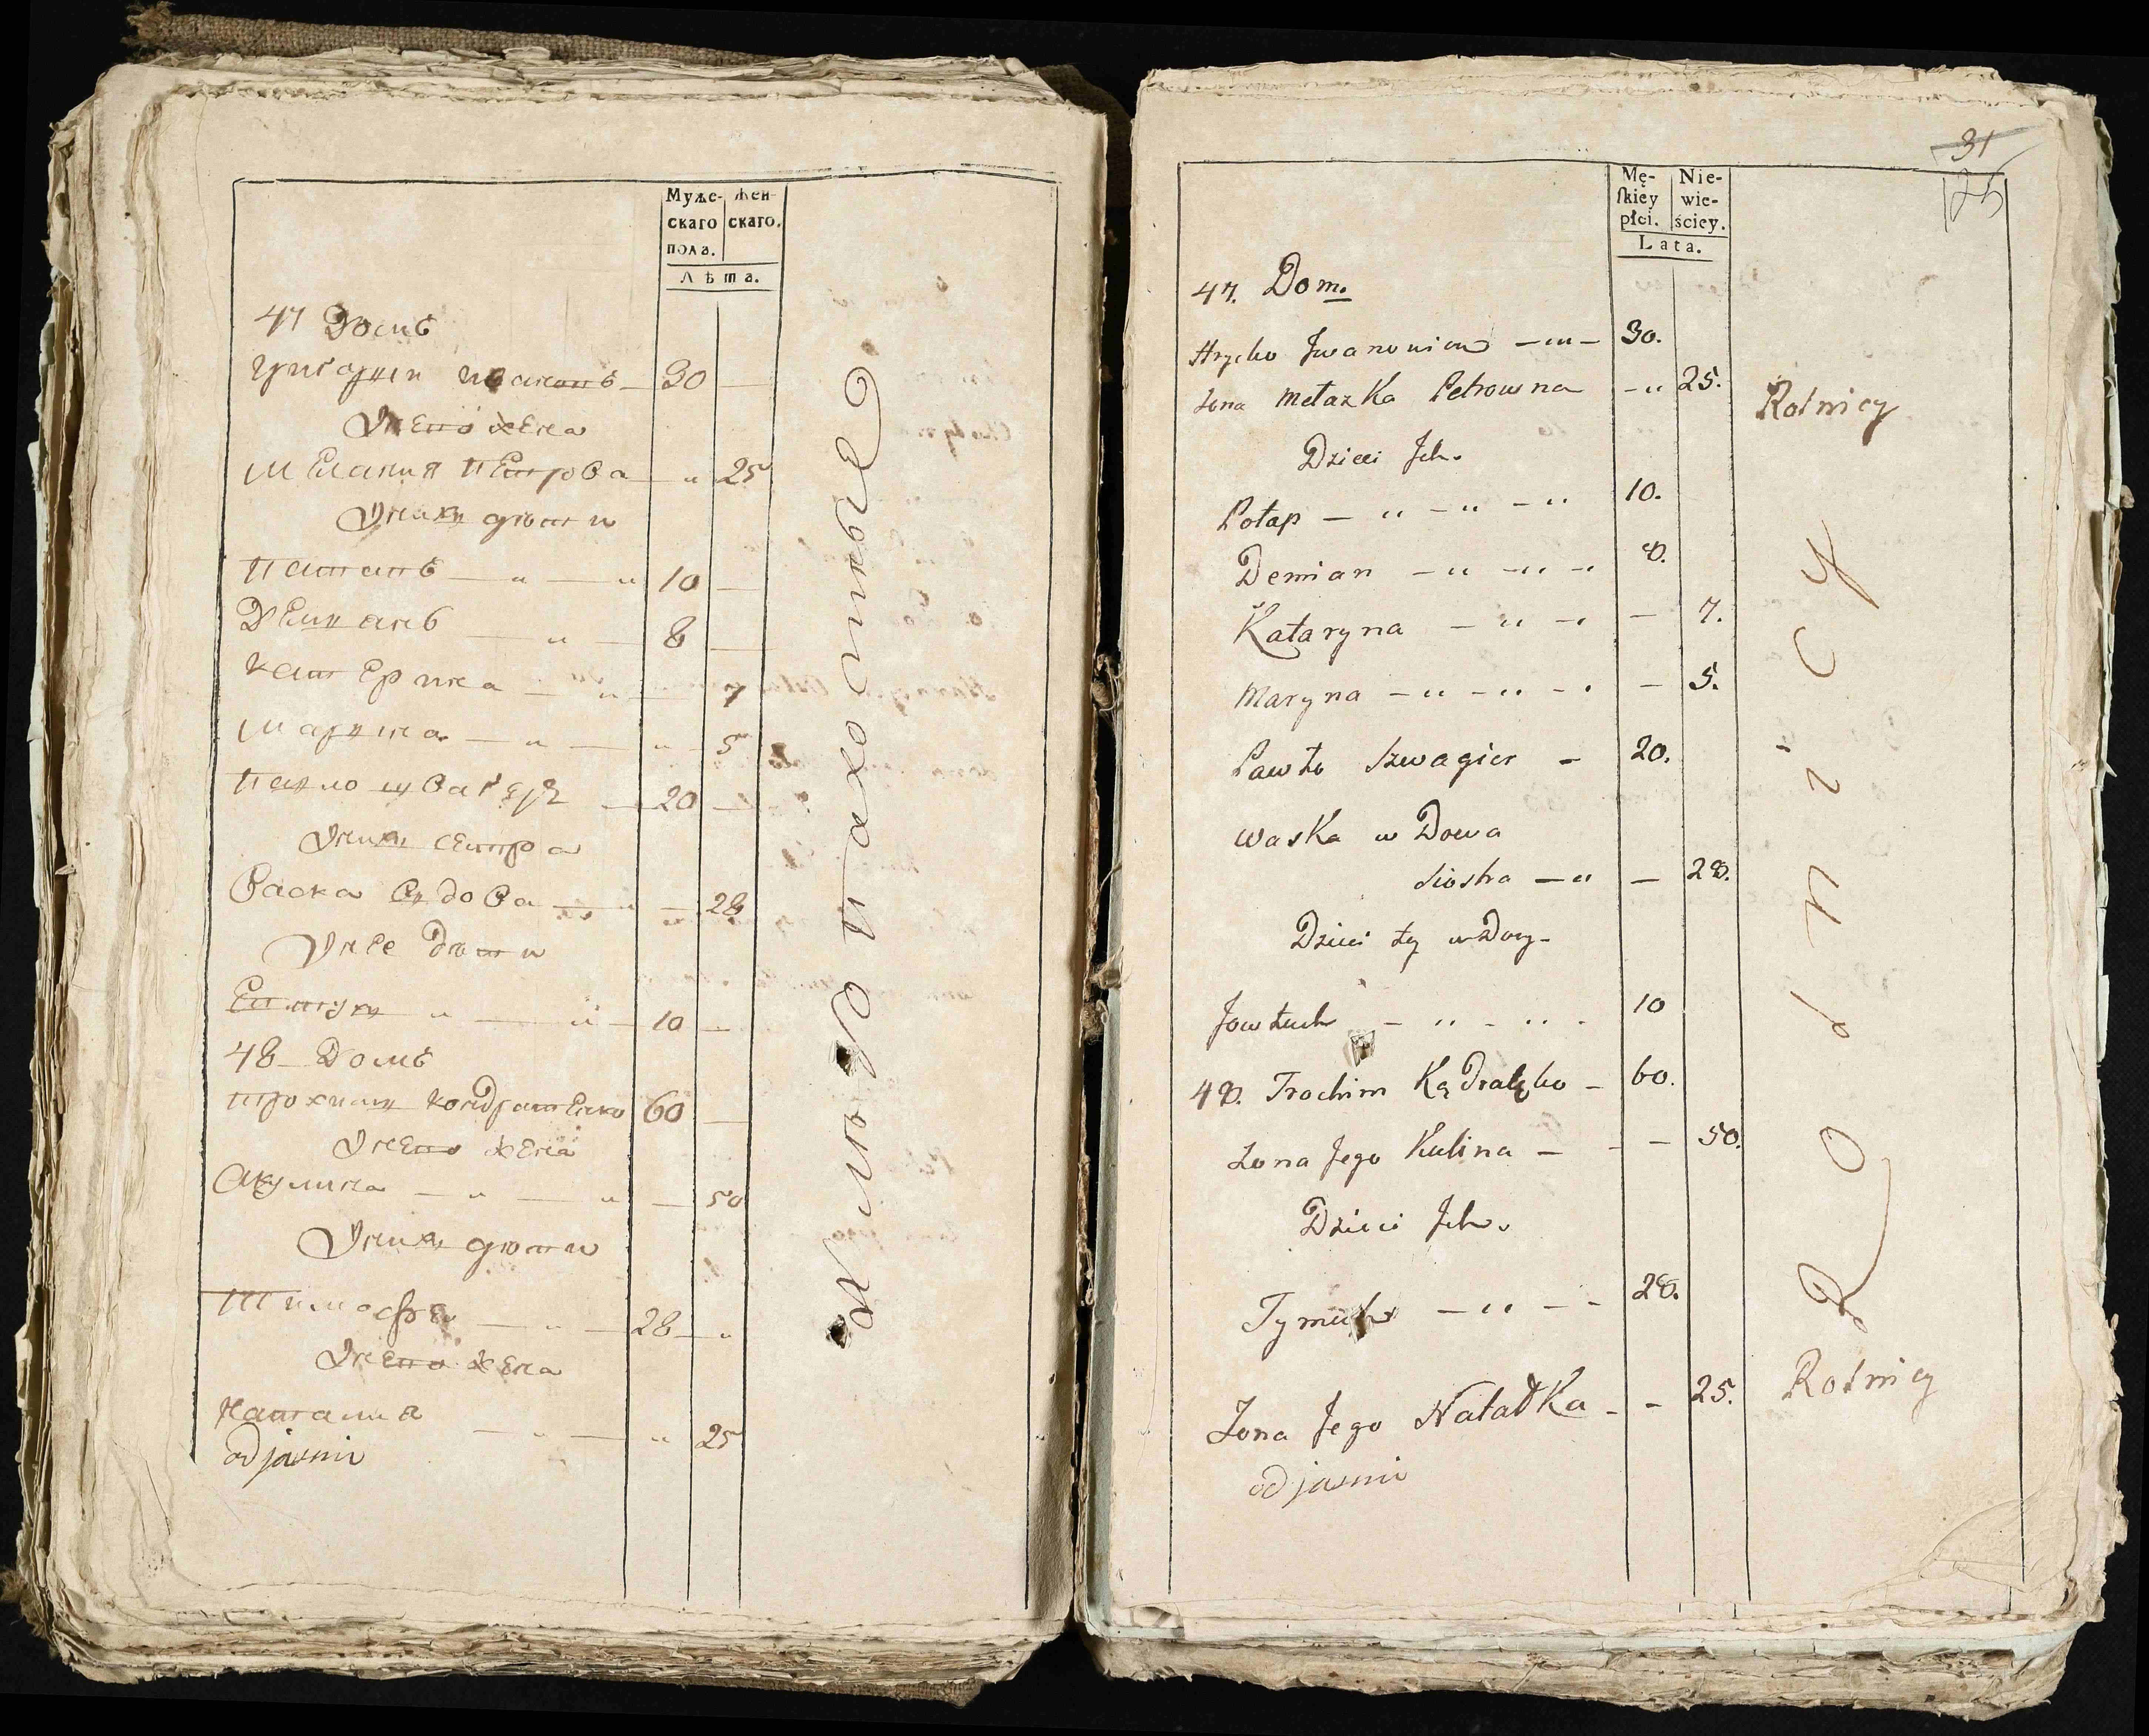 Муже-
скаго
пола.
Жен-
скаго.
Лѣта.
47 Домъ
григории иванъ — 30 —
Унего жена
мелания петрова — „ 25
Унихъ дюти
патапъ — „ — „ 10 —
Демянъ — „ — 8 —
катерина — „ — 7
марина — „ — „ — 5
павло швагеръ — 20 —
Унихъ сестра
Васка вдова — „ — 28
Унее дюти
Евтухъ „ — „ — 10 —
48 — Домъ
трохимъ кондратенко 60 —
Унего жена
акулина — „ — „ — 50
Унихъ дюти
Тимофей — „ — 28 — „
Унего жена
наталия — „ — „ 25
odjasnie
31
25
Mę-
ſkiey
płci.
Nie-
wie-
ściey.
Lata.
47. Dom.
Hrycko Jwanowicz — „ — 30.
żona Mełazka Petrowna — „ 25.
Rolnicy
Dzieci Jch.
Potap — „ — „ — „ 10.
Demian — „ — „ — 8.
Kataryna — „ — — 7.
Maryna — „ — „ — — 5.
Pawło Szwagier — 20.
Waska wDowa
siostra — „ — 28.
Dzieci tey wDowy —
Jowtuch — „ — „ — 10
48. Trochim KąDratęko — 60.
żona Jego Kulina — — — 50.
Dzieci Jch.
Tymuch — „ — — 28.
Żona Jego Natałka — — 25.
Rolnicy
odjasnie
Rolnicy